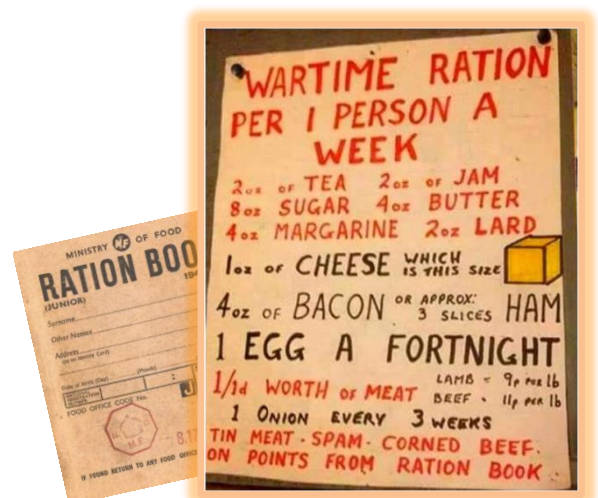 MINISTRY MF OF FOOD
RATION BOO
194
(JUNIOR)
Surname
Other Names
Address
(as on Identity Card)
Date of birth (Day) (Month)
FOOD OFFICE CODE No.
J
M.F.
8.17
IF FOUND RETURN TO ANY FOOD OFFICE
WARTIME RATION
PER 1 PERSON A
WEEK
2oz OF TEA 2oz OF JAM
8oz SUGAR 4oz BUTTER
4oz MARGARINE 2oz LARD
1oz OF CHEESE WHICH
IS THIS SIZE
4oz OF BACON OR APPROX:
3 SLICES HAM
1 EGG A FORTNIGHT
1/1d WORTH OF MEAT LAMB = 9p PER lb
BEEF = 11p PER lb
1 ONION EVERY 3 WEEKS
TIN MEAT - SPAM - CORNED BEEF.
ON POINTS FROM RATION BOOK